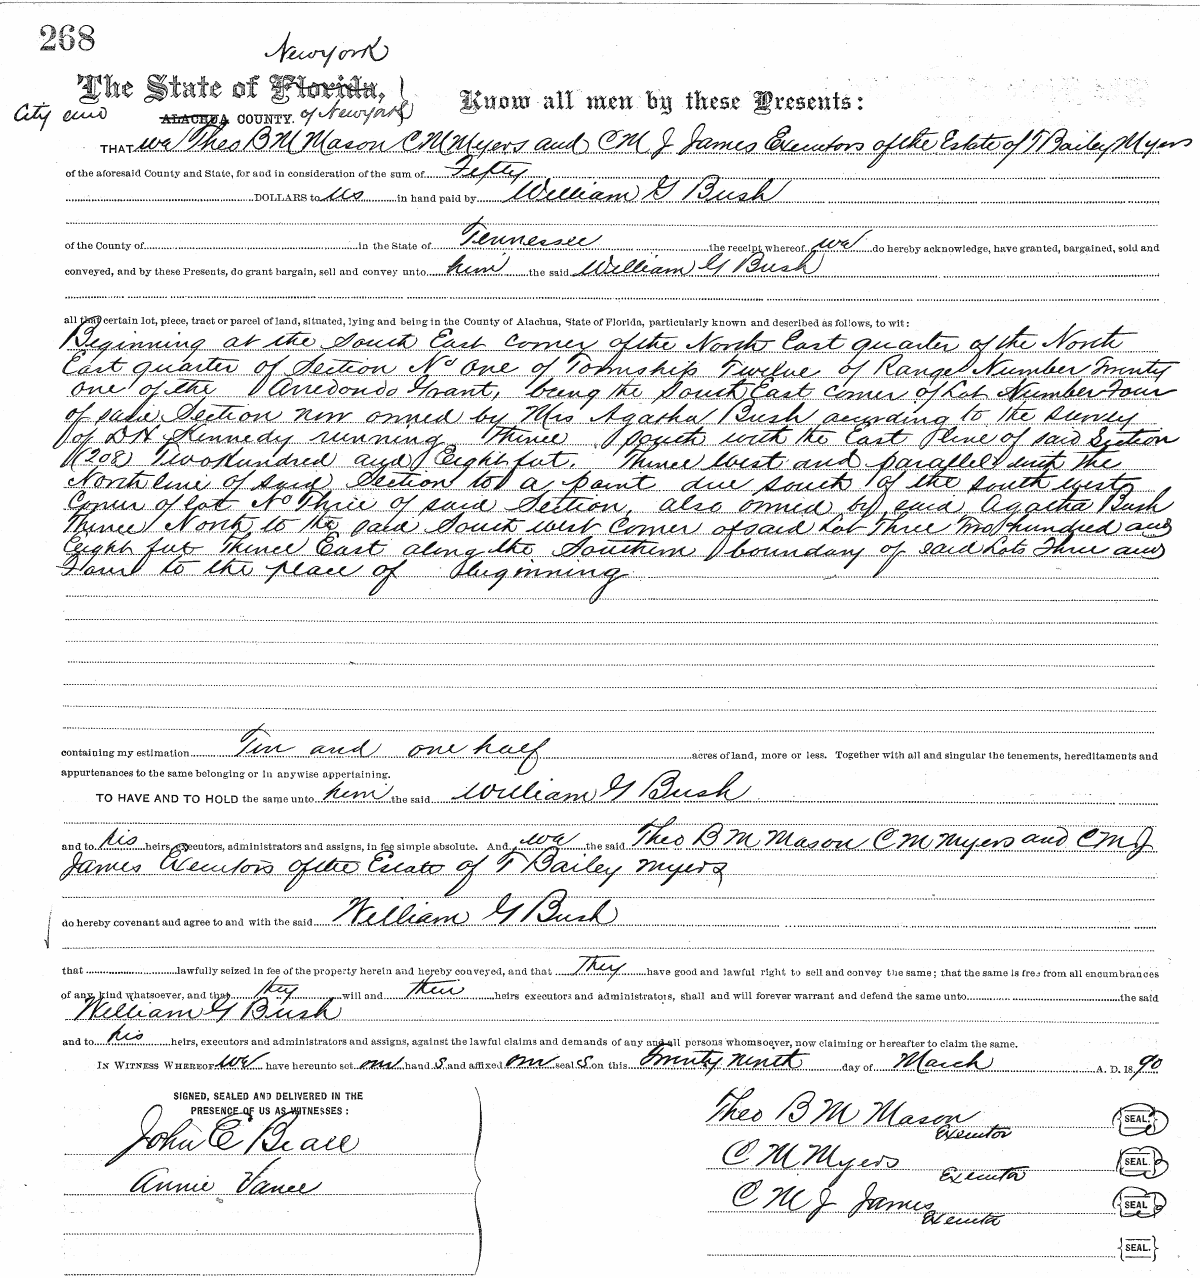 268
New york
The State of Florida,
City and
ALACHUA COUNTY. of New york
Know all men by these Presents:
THAT we Theo B M Mason C M Myers and C M J James Executors of the Estate of T Bailey Myers
of the aforesaid County and State, for and in consideration of the sum of Fifty
DOLLARS to us in hand paid by William G Bush
of the County of in the State of Tennessee the receipt whereof we do hereby acknowledge, have granted, bargained, sold and
conveyed, and by these Presents, do grant bargain, sell and convey unto him the said William G Bush
all that certain lot, piece, tract or parcel of land, situated, lying and being in the County of Alachua, State of Florida, particularly known and described as follows, to wit:
Beginning at the South East corner of the North East quarter of the North
East quarter of Section No one of Township Twelve of Range Number Twenty
one of the Arredondo Grant, being the South East corner of Lot Number Four
of said Section now owned by Mrs Agatha Bush according to the survey
of D H Kennedy running Thence South with the East line of said Section
(208) Two Hundred and Eight feet. Thence West and parallel with the
North line of said Section to a point due south of the south west
Corner of lot No Three of said Section, also owned by said Agatha Bush
Thence North to the said South west Corner of said Lot Three Two hundred and
Eight feet Thence East along the Southern boundary of said Lots Three and
Four to the place of Beginning
containing my estimation Ten and one half acres of land, more or less. Together with all and singular the tenements, hereditaments and
appurtenances to the same belonging or in anywise appertaining.
TO HAVE AND TO HOLD the same unto him the said William G Bush
and to his heirs, executors, administrators and assigns, in fee simple absolute. And we the said Theo B M Mason C M Myers and C M J
James Executors of the Estate of T Bailey Myers
do hereby covenant and agree to and with the said William G Bush
that lawfully seized in fee of the property herein and hereby conveyed, and that They have good and lawful right to sell and convey the same; that the same is free from all encumbrances
of any kind whatsoever, and that they will and their heirs executors and administrators, shall and will forever warrant and defend the same unto the said
William G Bush
and to his heirs, executors and administrators and assigns, against the lawful claims and demands of any and all persons whomsoever, now claiming or hereafter to claim the same.
IN WITNESS WHEREOF we have hereunto set our hand s and affixed our seal s on this Twenty ninth day of March A. D. 18 90
SIGNED, SEALED AND DELIVERED IN THE
PRESENCE OF US AS WITNESSES:
John E Beall
Annie Vance
Theo B M Mason SEAL.
Executor
C M Myers SEAL.
Executor
C M J James SEAL.
Executor
SEAL.